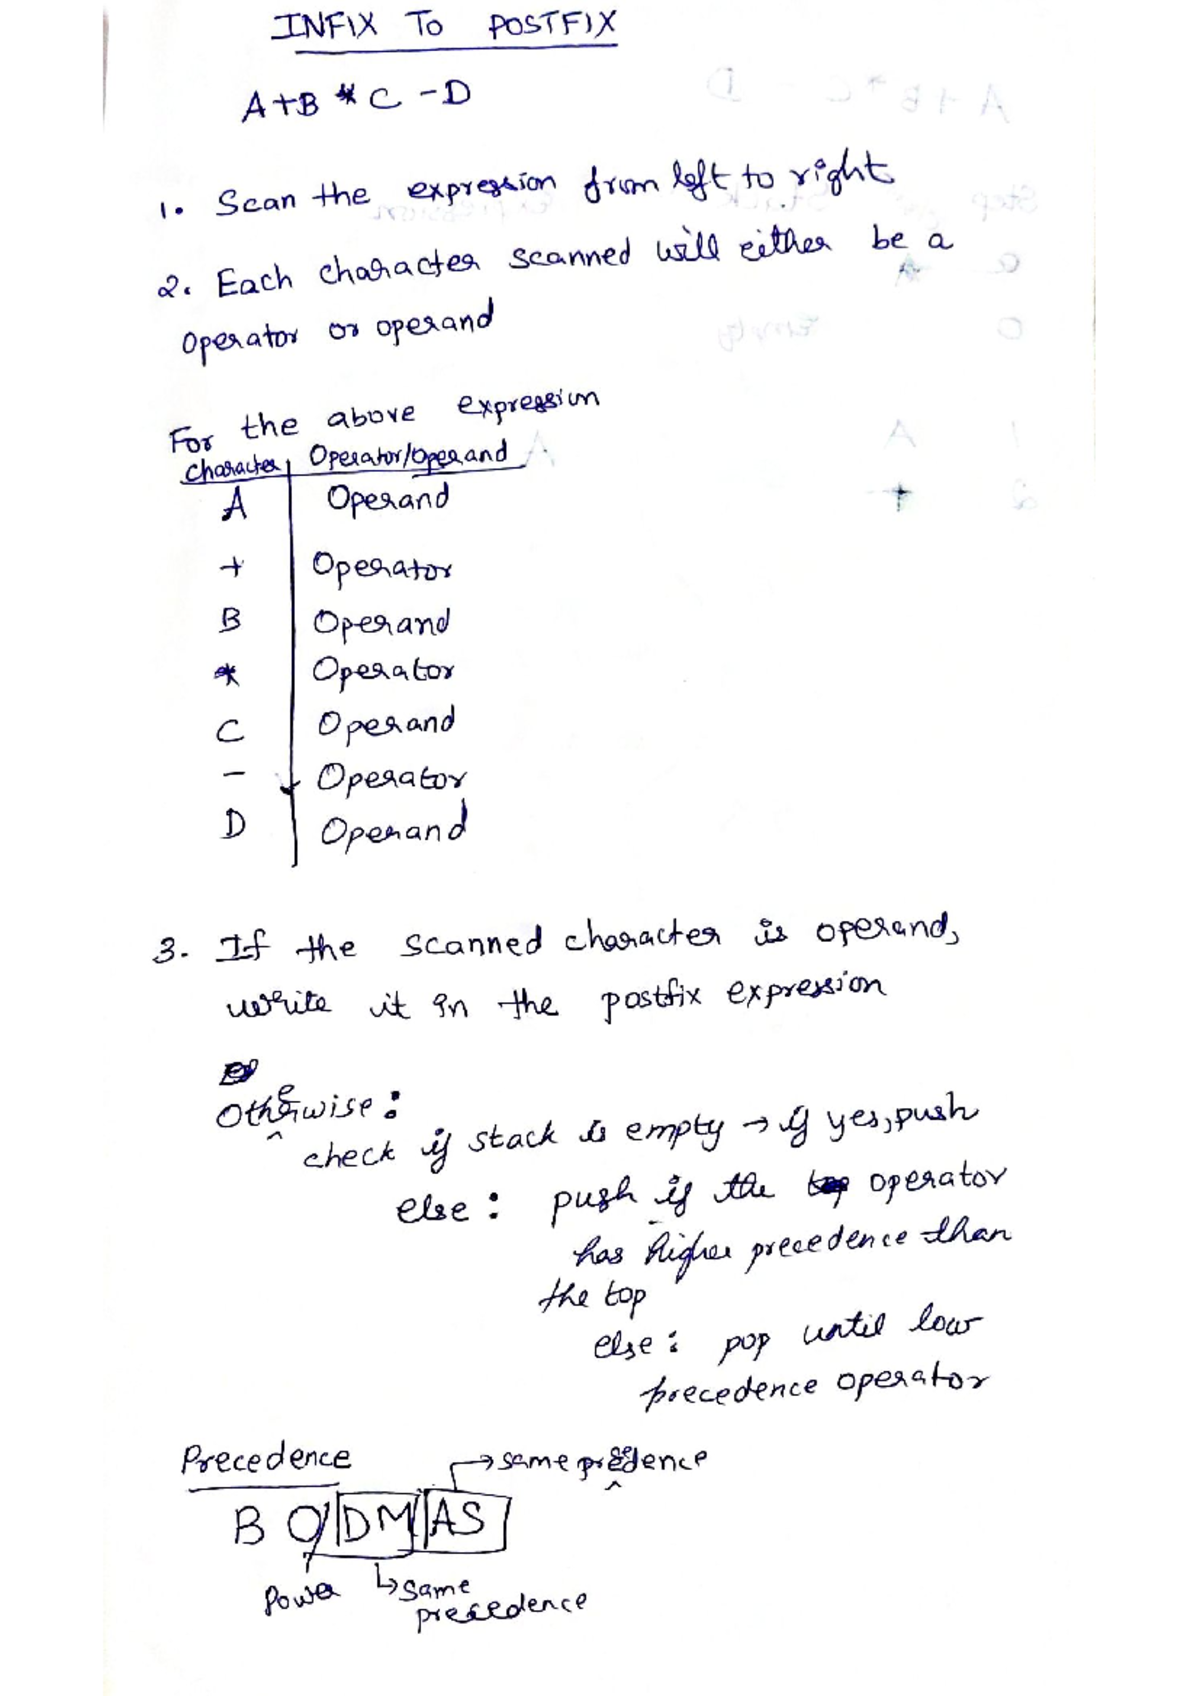 INFIX TO POSTFIX
A+B * C - D
1. Scan the expression from left to right
2. Each character scanned will either be a
operator or operand
For the above expression
character Operator/Operand
A Operand
+ Operator
B Operand
* Operator
C Operand
- Operator
D Operand
3. If the scanned character is operand,
write it in the postfix expression
Otherwise:
check if stack is empty → if yes, push
else: push if the operator
has higher precedence than
the top
else: pop until low
precedence operator
Precedence
→ same precedence
B O DM AS
Power
↳ same
precedence